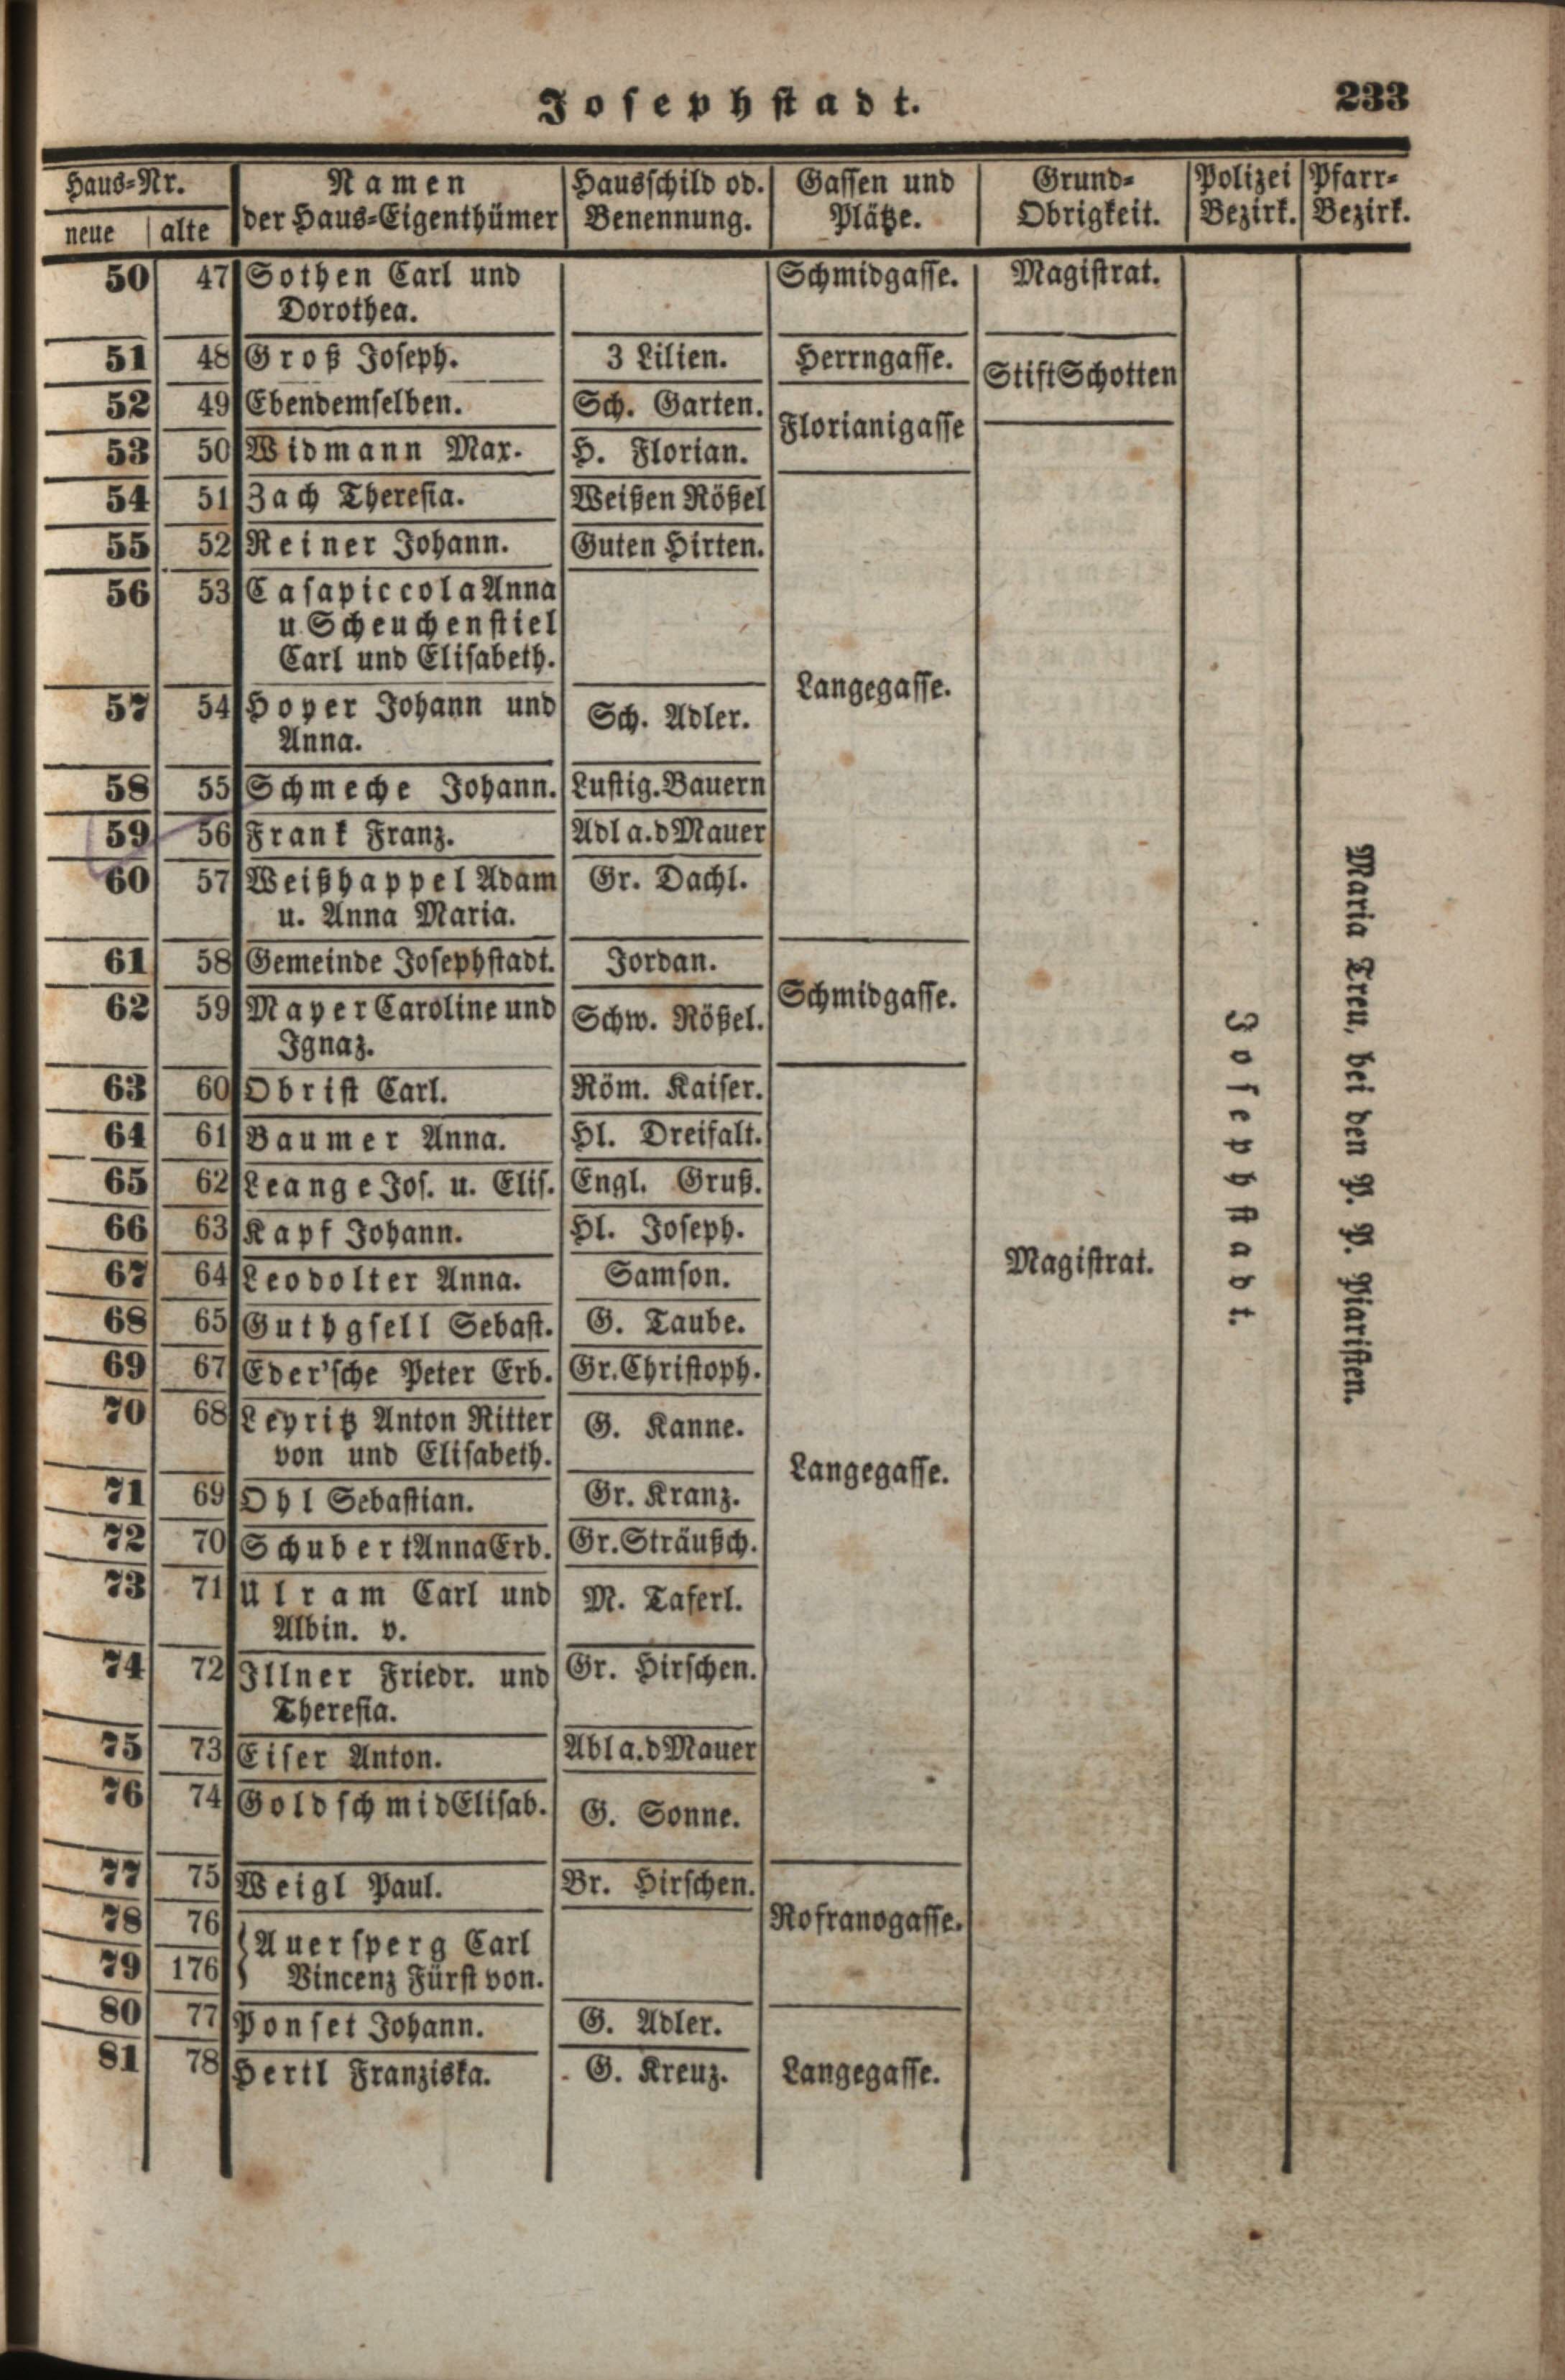 Josephstadt. 233
Haus-Nr. Namen Hausschild od. Gassen und Grund- Polizei Pfarr-
neue alte der Haus-Eigenthümer Benennung. Plätze. Obrigkeit. Bezirk. Bezirk.
50 47 Sothen Carl und Schmidgasse. Magistrat.
Dorothea.
51 48 Groß Joseph. 3 Lilien. Herrngasse. Stift Schotten
52 49 Ebendemselben. Sch. Garten. Florianigasse
53 50 Widmann Max. H. Florian.
54 51 Zach Theresia. Weißen Rößel
55 52 Reiner Johann. Guten Hirten.
56 53 Casapiccola Anna
u Scheuchenstiel
Carl und Elisabeth.
Langegasse.
57 54 Hoyer Johann und Sch. Adler.
Anna.
58 55 Schmeche Johann. Lustig. Bauern
59 56 Frank Franz. Adl a. d Mauer
60 57 Weißhappel Adam Gr. Dachl.
u. Anna Maria.
61 58 Gemeinde Josephstadt. Jordan. Schmidgasse.
62 59 Mayer Caroline und Schw. Rößel.
Ignaz.
63 60 Obrist Carl. Röm. Kaiser.
64 61 Baumer Anna. Hl. Dreifalt.
65 62 Leange Jos. u. Elis. Engl. Gruß.
66 63 Kapf Johann. Hl. Joseph.
67 64 Leodolter Anna. Samson. Magistrat.
68 65 Guthgsell Sebast. G. Taube.
69 67 Eder'sche Peter Erb. Gr. Christoph.
70 68 Leyritz Anton Ritter G. Kanne.
von und Elisabeth.
Langegasse.
71 69 Ohl Sebastian. Gr. Kranz.
72 70 Schubert Anna Erb. Gr. Sträußch.
73 71 Ulram Carl und M. Taferl.
Albin. v.
74 72 Illner Friedr. und Gr. Hirschen.
Theresia.
75 73 Eiser Anton. Abl a. d Mauer
76 74 Goldschmid Elisab. G. Sonne.
77 75 Weigl Paul. Br. Hirschen. Rofranogasse.
78 76 Auersperg Carl
79 176 Vincenz Fürst von.
80 77 Ponset Johann. G. Adler. Langegasse.
81 78 Hertl Franziska. G. Kreuz.
Josephstadt.
Maria Treu, bei den P. P. Piaristen.